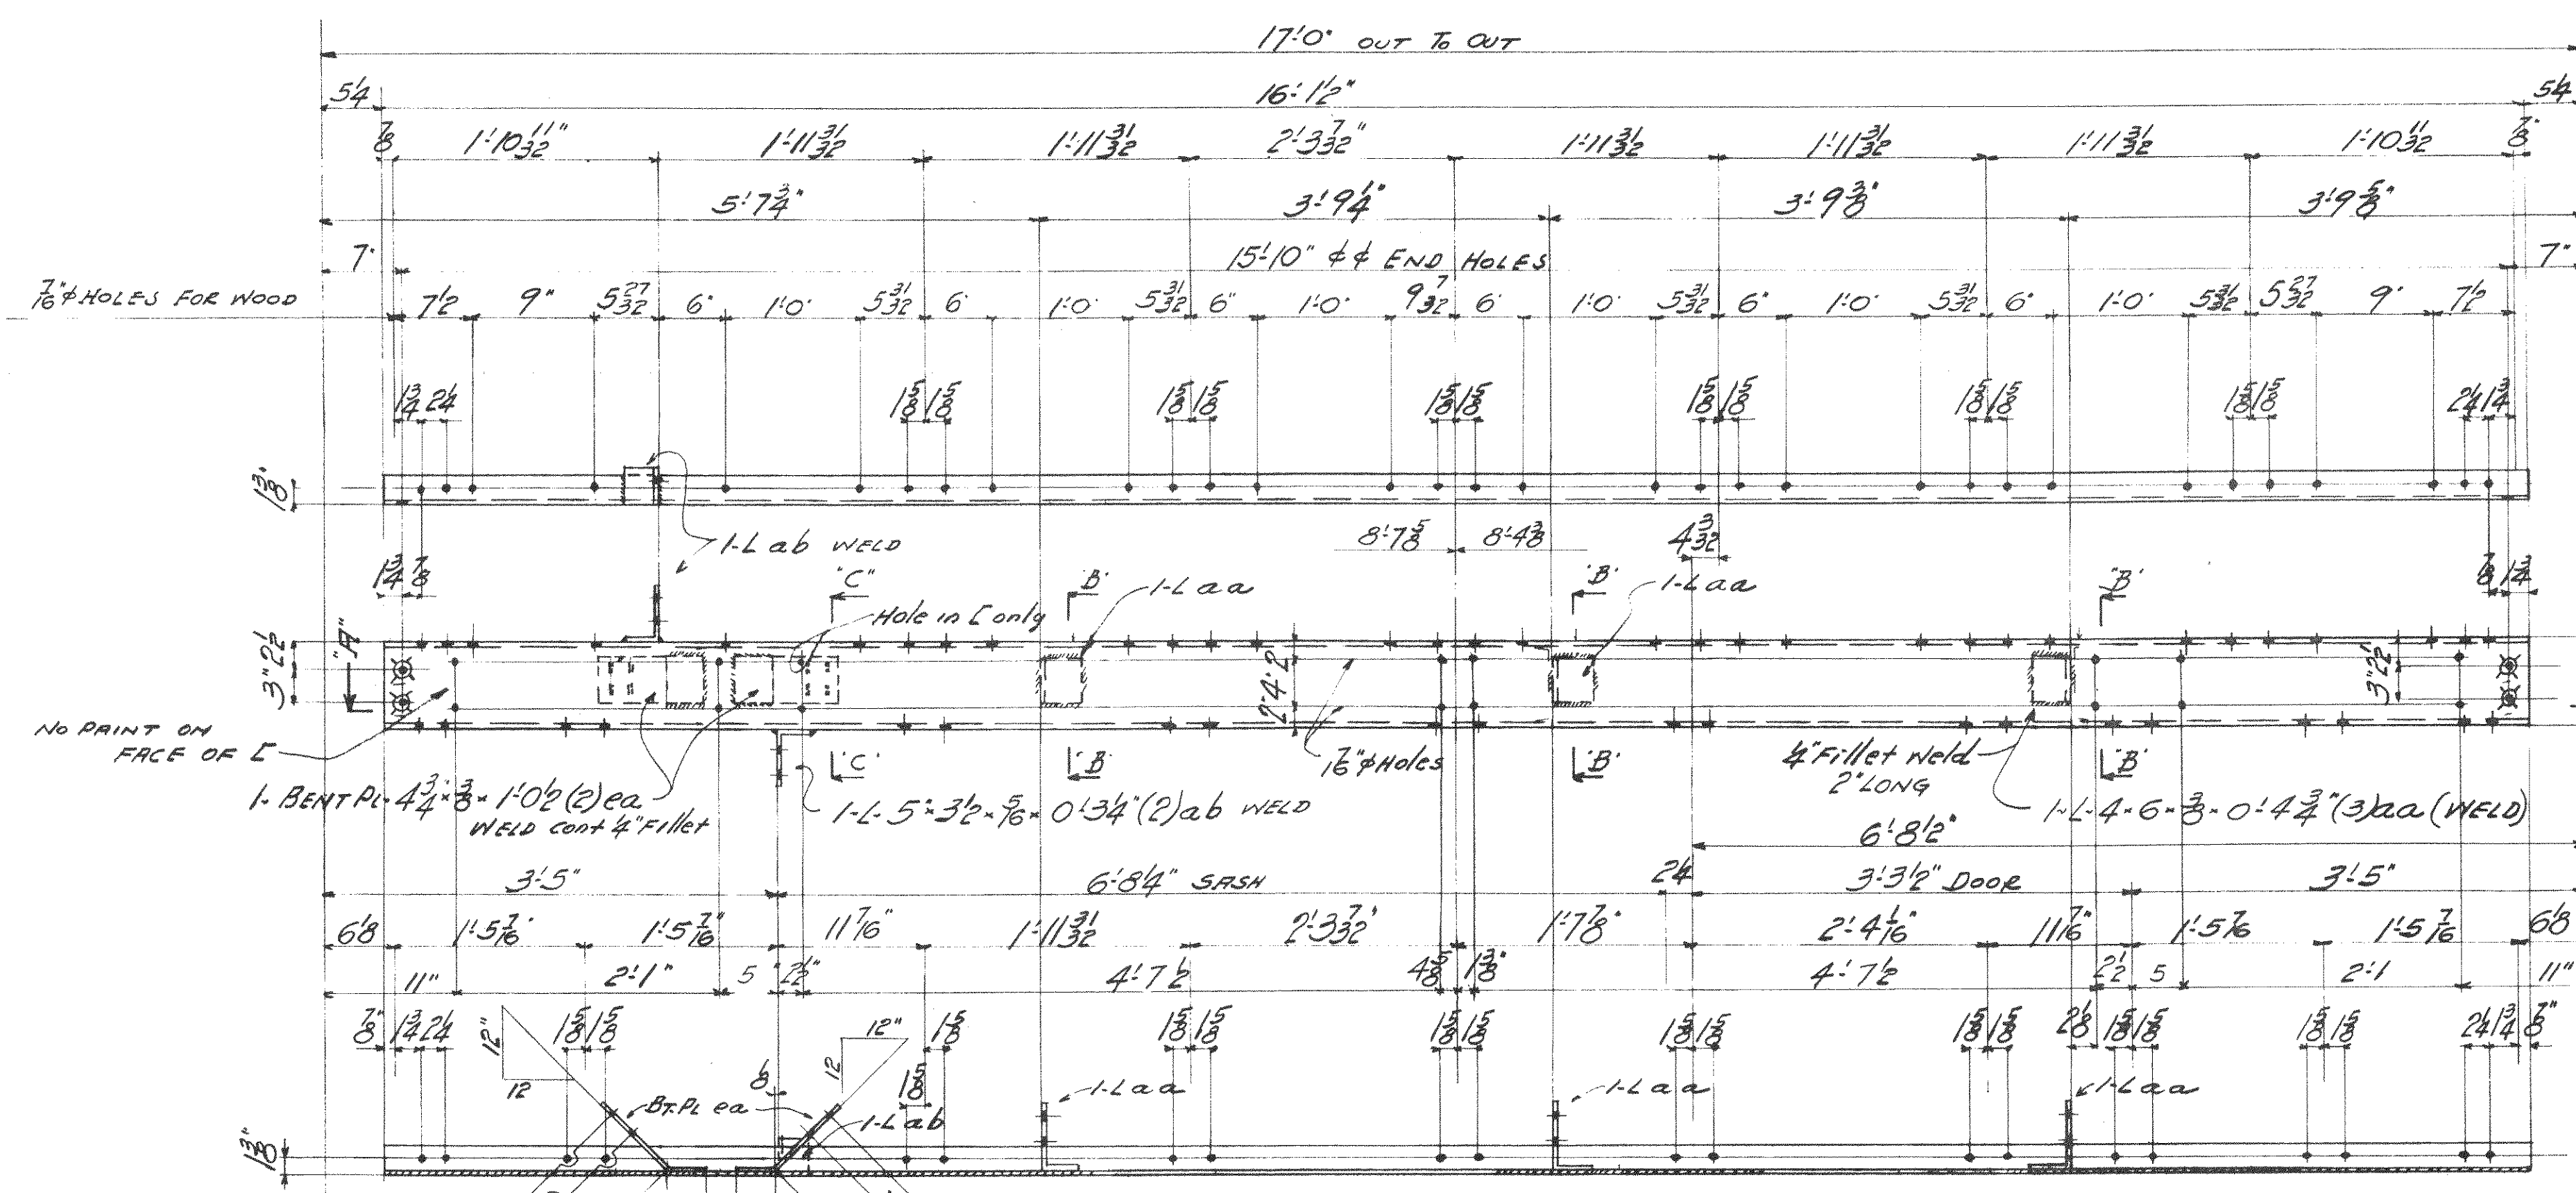 17'-0" OUT TO OUT
5 1/4 16'-1 1/2" 5 1/4
7/8 1'-10 11/32" 1'-11 31/32 1'-11 31/32 2'-3 7/32" 1'-11 31/32 1'-11 31/32 1'-11 31/32 1'-10 11/32 7/8"
5'-7 3/4" 3'-9 1/4" 3'-9 3/8" 3'-9 5/8"
7" 15'-10" ¢ ¢ END HOLES 7"
7/16" φ HOLES FOR WOOD 7 1/2 9" 5 27/32 6" 1'-0" 5 31/32 6" 1'-0 5 31/32 6" 1'-0" 9 7/32 6" 1'-0" 5 31/32 6" 1'-0" 5 31/32 6" 1'-0" 5 31/32 5 27/32 9" 7 1/2
1 3/4 2 1/4 1 5/8 1 5/8 1 5/8 1 5/8 1 5/8 1 5/8 1 5/8 1 5/8 1 5/8 1 5/8 1 5/8 1 5/8 2 1/4 1 3/4
1 3/8"
1-L ab WELD
8'-7 5/8 8'-4 3/8 4 3/32
1 3/4 7/8 "C" "B" 1-L aa "B" 1-L aa "B" 7/8 1 3/4
Hole in [ only
3" 2 1/2 "A" 2" 4" 2 3" 2 1/2
NO PAINT ON
FACE OF [
"C" "B" 7/16" φ Holes "B" 1/4" Fillet Weld
2" LONG
"B"
1- BENT PL- 4 3/4 × 3/8 × 1'-0 1/2 (2) ea
WELD cont 1/4" Fillet
1-L- 5" × 3 1/2 × 5/16 × 0'-3 1/4" (2) ab WELD
1-L- 4 × 6 × 3/8 × 0'-4 3/4" (3) aa (WELD)
6'-8 1/2"
3'-5" 6'-8 1/4" SASH 2 1/4 3'-3 1/2" DOOR 3'-5"
6 1/8 1'-5 7/16" 1'-5 7/16" 11 7/16" 1'-11 31/32 2'-3 7/32" 1'-7 7/8" 2'-4 1/16" 11 7/16" 1'-5 7/16 1'-5 7/16 6 1/8
11" 2'-1" 5 2 1/2" 4'-7 1/2 4 5/8 1 3/8" 4'-7 1/2 2 1/2 5 2'-1 11"
7/8" 1 3/4 2 1/4 1 5/8 1 5/8 1 5/8 1 5/8 1 5/8 1 5/8 1 5/8 1 5/8 1 5/8 1 5/8 1 5/8 2 1/8 1 5/8 1 5/8 1 5/8 1 5/8 2 1/4 1 3/4 7/8"
12" 12"
12 12
1/8 1 5/8
BT. PL ea 1-L aa 1-L aa 1-L aa
1-L ab
1 3/8"